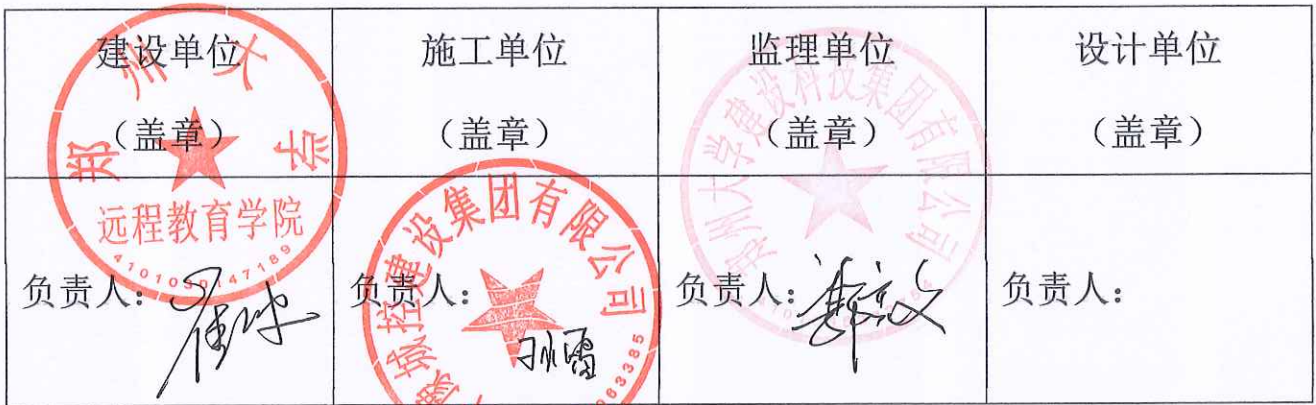 建设单位 施工单位 监理单位 设计单位
（盖章） （盖章） （盖章） （盖章）
负责人： 负责人： 负责人： 负责人：
郑州大学
远程教育学院
4101030147189
控建设集团有限公司
063385
郑州大学建设科技集团有限公司